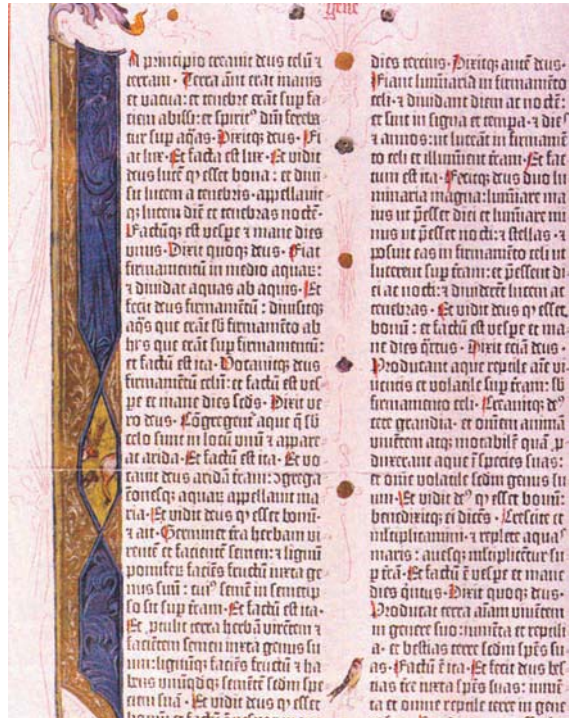 gene
A principio creauit deus celū ⁊
terram. Terra aūt erat inanis
et vacua: et tenebre erāt sup fa-
ciem abissi: et spiritꝰ dñi fereba-
tur sup aq̄as. Dixitq; deus. Fi-
at lux. Et facta est lux. Et vidit
deus lucē ꝙ esset bona: et diui-
sit lucem a tenebris. appellauit-
q; lucem diē et tenebras noctē.
Factūq; est vespe ⁊ mane dies
vnus. Dixit quoq; deus. Fiat
firmamentū in medio aquaꝝ:
⁊ diuidat aquas ab aquis. Et
fecit deus firmamētū: diuisitq;
aq̄s que erāt sb firmamēto ab
hijs que erāt sup firmamentū:
et factū est ita. Vocauitq; deus
firmamētū celū: et factū est ves-
pe et mane dies scds. Dixit ve-
ro deus. Cōgregent̄ aque q̄ sb
celo sunt in locū vnū ⁊ appare-
at arida. Et factū est ita. Et vo-
cauit deus aridā t̄ram: ꝯgrega-
cōnesq; aquaꝝ appellauit ma-
ria. Et vidit deus ꝙ esset bonū.
⁊ ait. Germinet t̄ra herbam vi-
rentē et facientē semen: ⁊ lignū
pomiferū faciēs fructū iuxta ge-
nus suū: cuiꝰ semē in semetip-
so sit sup t̄ram. Et factū est ita.
Et ꝓtulit terra herbā virētem ⁊
facientem semen iuxta genus su-
um: lignūq; faciēs fructū ⁊ ha-
bens vnūqdq; semētē scdm spe-
ciem suā. Et vidit deus ꝙ esset
dies tercius. Dixitq; autē deus.
Fiant lūnaria in firmamēto
celi. ⁊ diuidant diem ac noctē:
et sint in signa et tempa. ⁊ dies
⁊ annos: ut luceāt in firmamē-
to celi et illuminēt t̄ram. Et fac-
tum est ita. Fecitq; deus duo lu-
minaria magna: lumīare ma-
ius ut p̄esset diei et lumīare mi-
nus ut p̄esset nocti: ⁊ stellas. ⁊
posuit eas in firmamēto celi ut
lucerent sup t̄ram: et p̄essent di-
ei ac nocti: ⁊ diuiderēt lucem ac
tenebras. Et vidit deus ꝙ esset
bonū: et factū est vespe et ma-
ne dies q̄rtus. Dixit eciā deus.
Producant aque reptile aīe vi-
uentis et volatile sup t̄ram: sb
firmamento celi. Creauitq; deꝰ
cete grandia. et omnem animā
viuentem atq; motabilē quā p-
duxerant aque ī species suas:
et omne volatile scdm genus su-
um. Et vidit deꝰ ꝙ esset bonū:
benedixitq; ei dicēs. Crescite et
ml̄tiplicamini. ⁊ replete aquas
maris: auesq; ml̄tiplicentur su-
p t̄rā. Et factū ē vespe et mane
dies quitus. Dixit quoq; deus.
Producat terra aīam viuētem
in genere suo: iumēta et reptili-
a. et bestias terre scdm spēs su-
as. Factū ē ita. Et fecit deus bes-
tias t̄re iuxta spēs suas: iumē-
ta et omne reptile terre in gene-